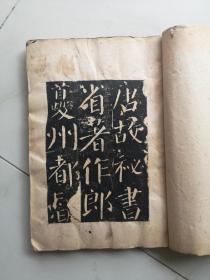 唐故祕書
省著作郎
夔州都督